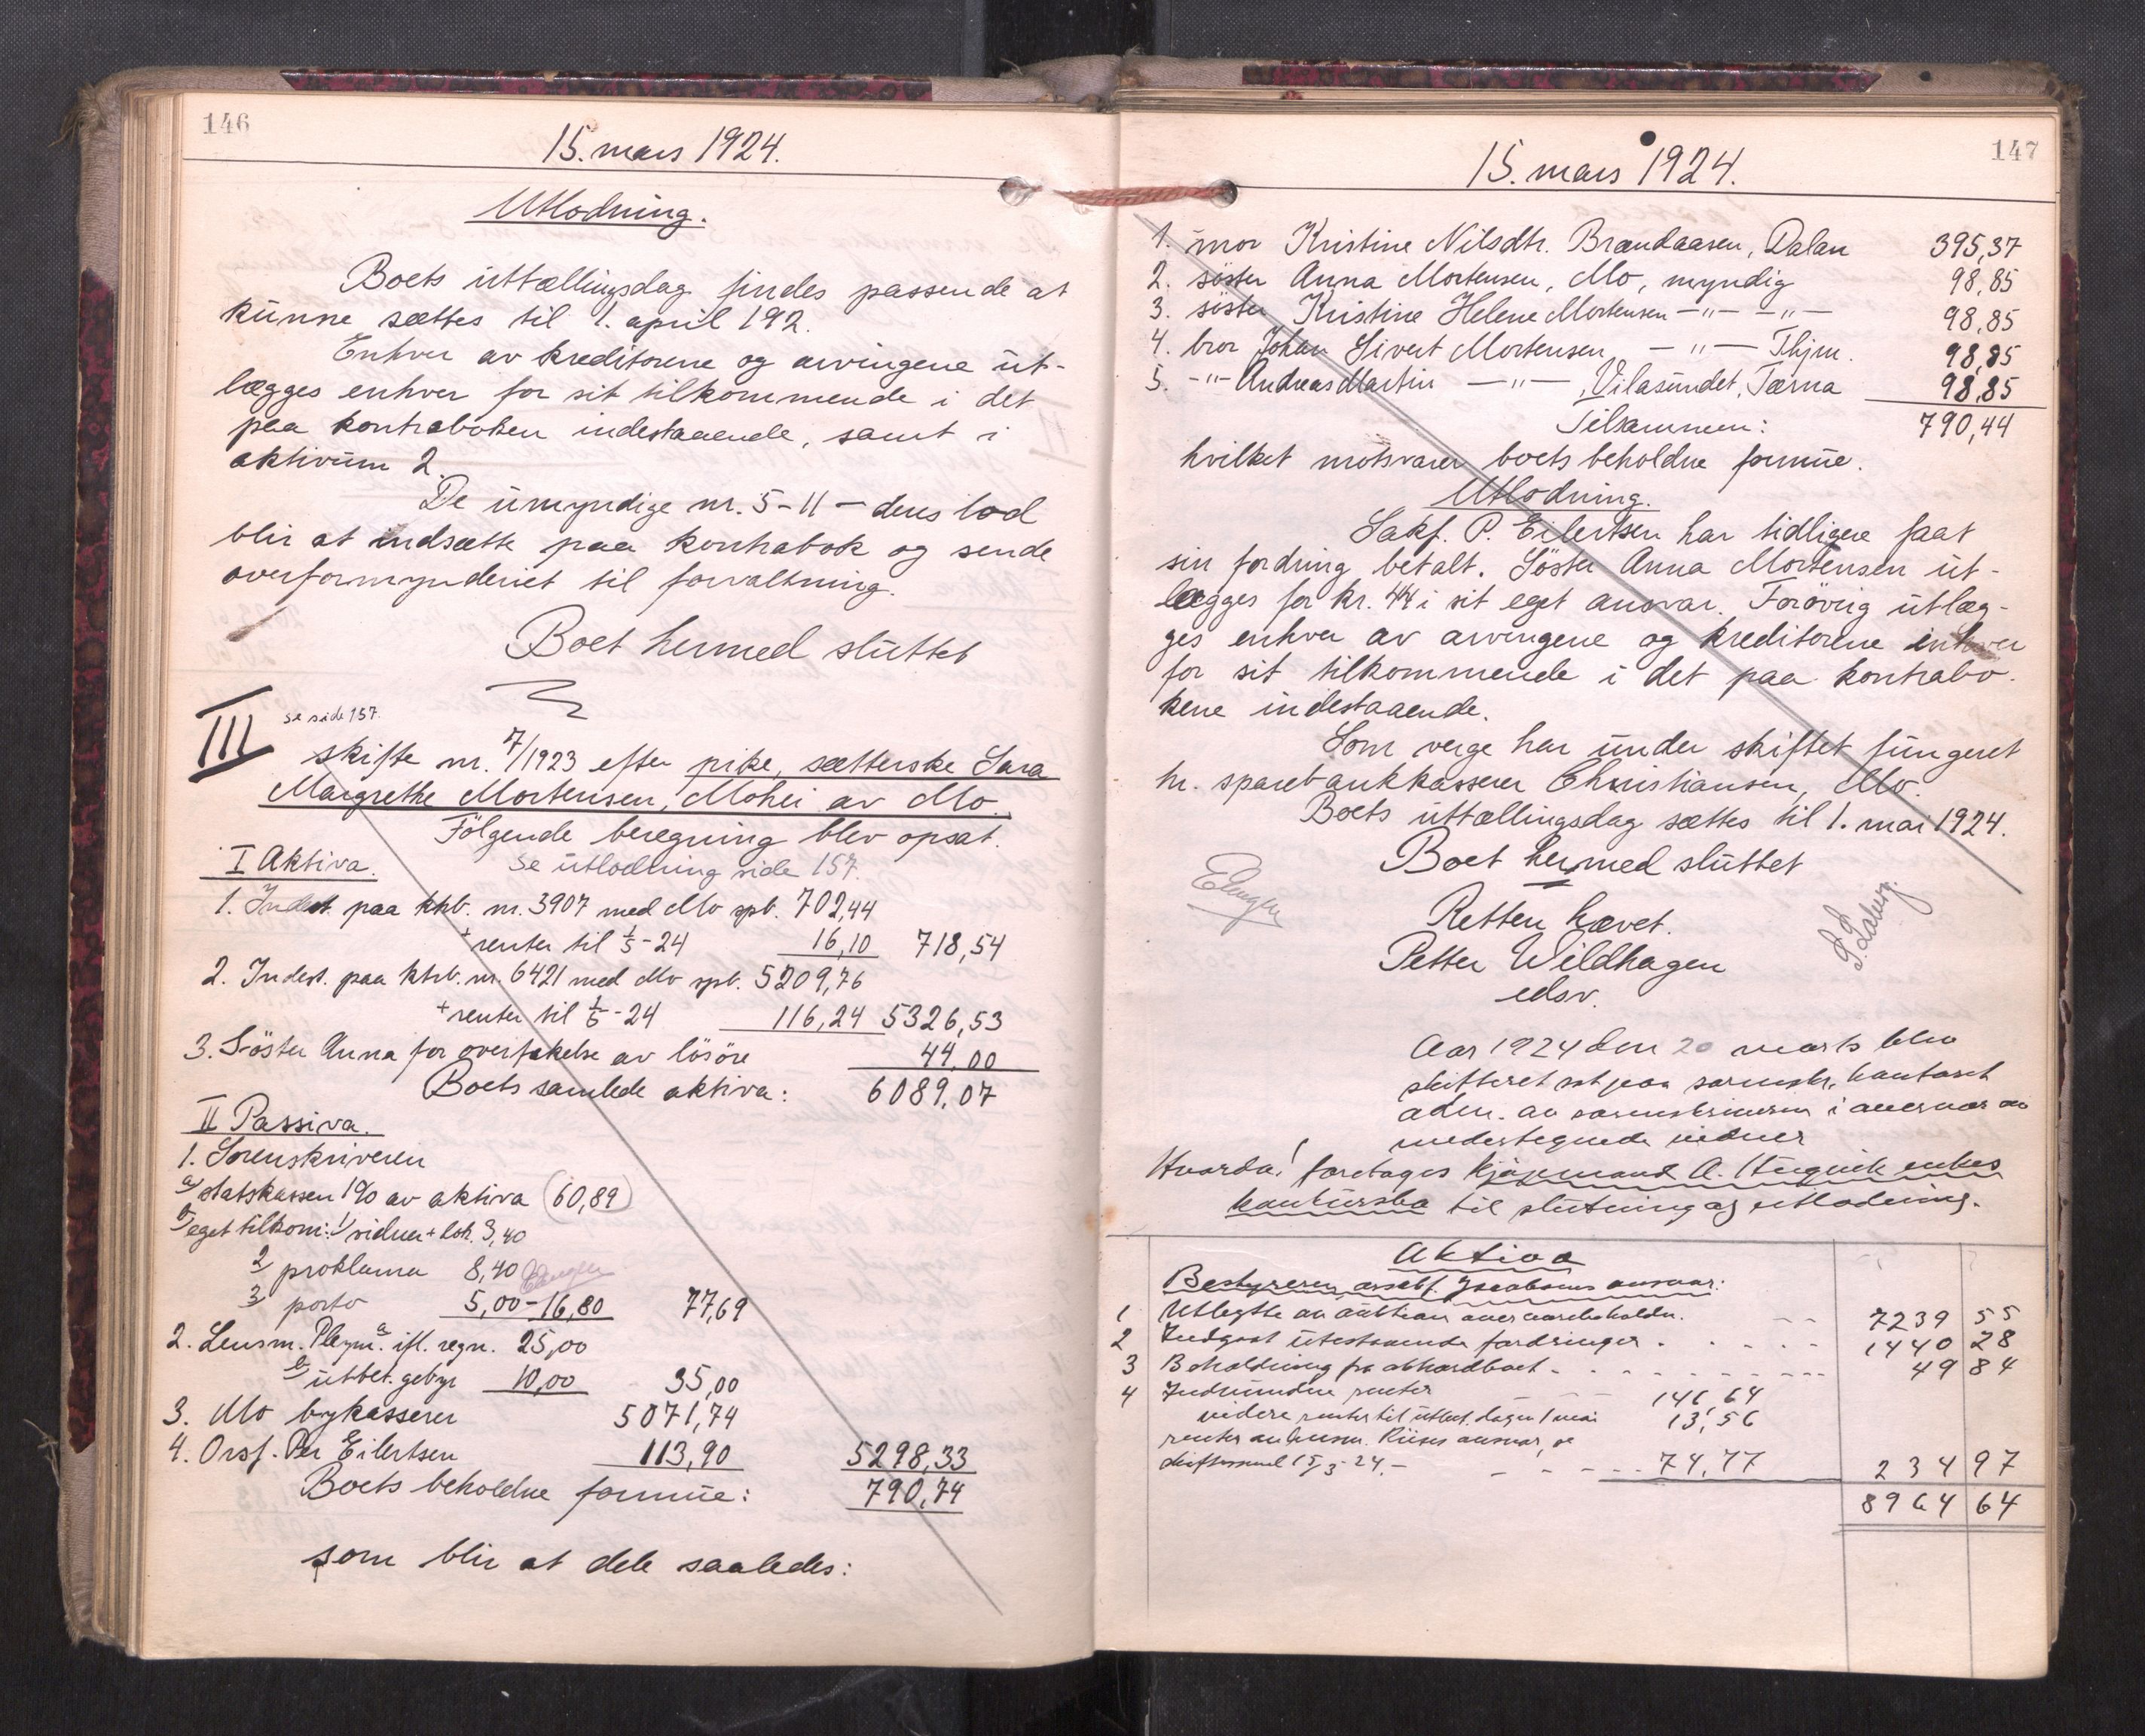 146
15. mars 1924.
Utlodning.
Boets uttællingsdag findes passende at
kunne sættes til 1. april 192.
Enhver av kreditorene og arvingene ut-
lægges enhver for sit tilkommende i det
paa kontraboken indestaaende, samt i
aktivum 2.
De umyndige nr. 5-11 - deres lod
blir at indsætte paa kontrabok og sende
overformynderiet til forvaltning.
Boet hermed sluttet
III se side 157.
skifte nr. 7/1923 efter pike, sætterske Sara
Margrethe Mortensen, Mohei av Mo.
Følgende beregning blev opsat.
I Aktiva. Se utlodning side 157.
1. Indest. paa ktrb. nr. 3907 med Mo spb. 702,44
+ renter til 1/5-24 16,10 718,54
2. Indest. paa ktrb. nr. 6421 med Mo spb. 5209,76
+ renter til 1/5-24 116,24 5326,53
3. Søster Anna for overtakelse av løsøre 44,00
Boets samlede aktiva: 6089,07
II Passiva.
1. Sorenskriveren
a) statskassen 1% av aktiva (60,89)
b) eget tilkom: 1) vidner + lok. 3,40
2) proklama 8,40
3) porto 5,00 - 16,80 77,69
2. Lensm. Pleym. a) ifl. regn. 25,00
b) utbet. gebyr 10,00 35,00
3. Mo bykasserer 5071,74
4. Orsf. Per Eilertsen 113,90 5298,33
Boets beholdne formue: 790,74
som blir at dele saaledes:
147
15. mars 1924.
1. mor Kristine Nilsdtr. Brændaasen, Dalan 395,37
2. søster Anna Mortensen, Mo, myndig 98,85
3. søster Kristine Helene Mortensen -"- -"- 98,85
4. bror Johan Sivert Mortensen, -"- Thjm. 98,85
5. -"- Andreas Martin -"-, Vilasundet, Tærna 98,85
Tilsammen: 790,44
hvilket motsvarer boets beholdne formue.
Utlodning.
Sakf. P. Eilertsen har tidligere faat
sin fordring betalt. Søster Anna Mortensen ut-
lægges for kr. 44 i sit eget ansvar. Forøvrig utlæg-
ges enhver av arvingene og kreditorene enhver
for sit tilkommende i det paa kontrabø-
kene indestaaende.
Som verge har under skiftet fungeret
hr. sparebankkasserer Christiansen, Mo.
Boets uttællingsdag sættes til 1. mai 1924.
Boet hermed sluttet
Retten hævet.
Petter Wildhagen
edsv.
Aar 1924 den 20 marts blev
skifteret sat paa sorenskr. kontoret
adm. av sorenskriveren i overvær av
undertegnede vidner
Hvorda! foretages kjøpmand A. enkes
konkursbo til slutning og utlodning.
Aktiva
Bestyreren, orsakf. Jacobsens ansvar:
1 Utbytte av auktion over varebeholdn. 7239 55
2 Indgaat utestaaende fordringer . . . . 1440 28
3 Beholdning fra akkordboet . . . . . 49 84
4 Indvundne renter 146,64
videre renter til utbet. dagen 1 mai 13,56
renter av lensm. Riises ansvar, se
skiftesaml 15/3-24.- 74,77 234 97
8964 64